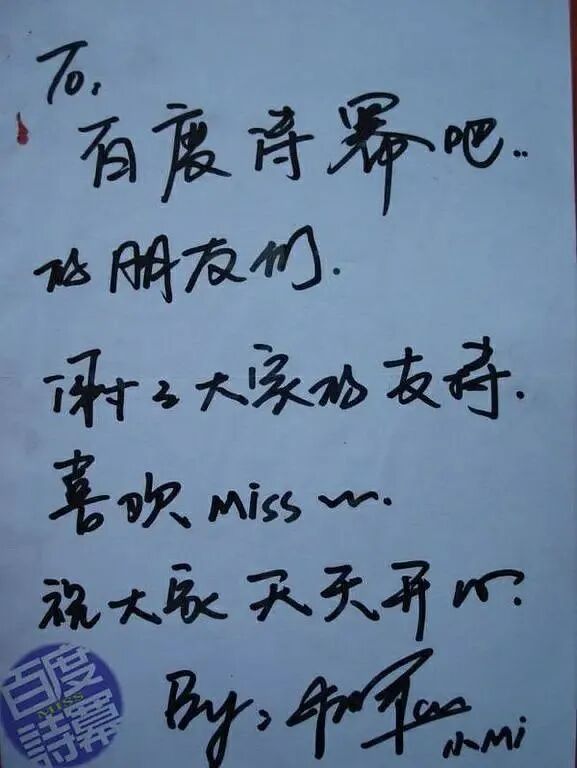 To:
百度诗幂吧..
的朋友们.
谢谢大家的支持.
喜欢 Miss ~.
祝大家天天开心.
By:
小Mi
百度
MISS
詩幂